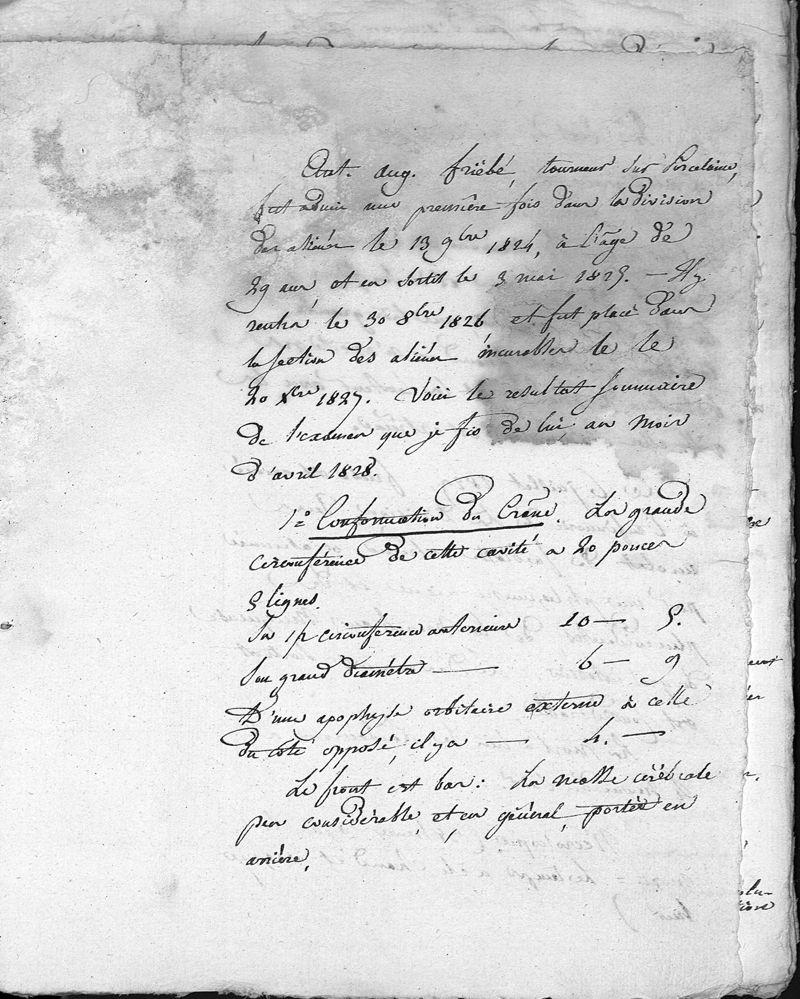 Ant. Aug. friébé, tourneur sur Porcelaine,
fut admis une première fois dans la division
des aliénés le 13 9bre 1824, à l'âge de
29 ans et en sortit le 3 mai 1825. — Il y
rentra le 30 8bre 1826 et fut placé dans
la section des aliénés incurables le le
20 Xbre 1827. Voici le resultat sommaire
de l'examen que je fis de lui, au mois
d'avril 1828.
1° Conformation du Crâne. La grande
circonférence de cette cavité a 20 pouces
5 lignes.
Sa 1/2 circonférence antérieure 10 — 5.
Son grand diamétre — 6 — 9
D'une apophyse orbitaire externe à celle
du coté opposé, il y a — 4. —
Le front est bas : La masse cérébrale
peu considérable et, en général, portée en
arrière.